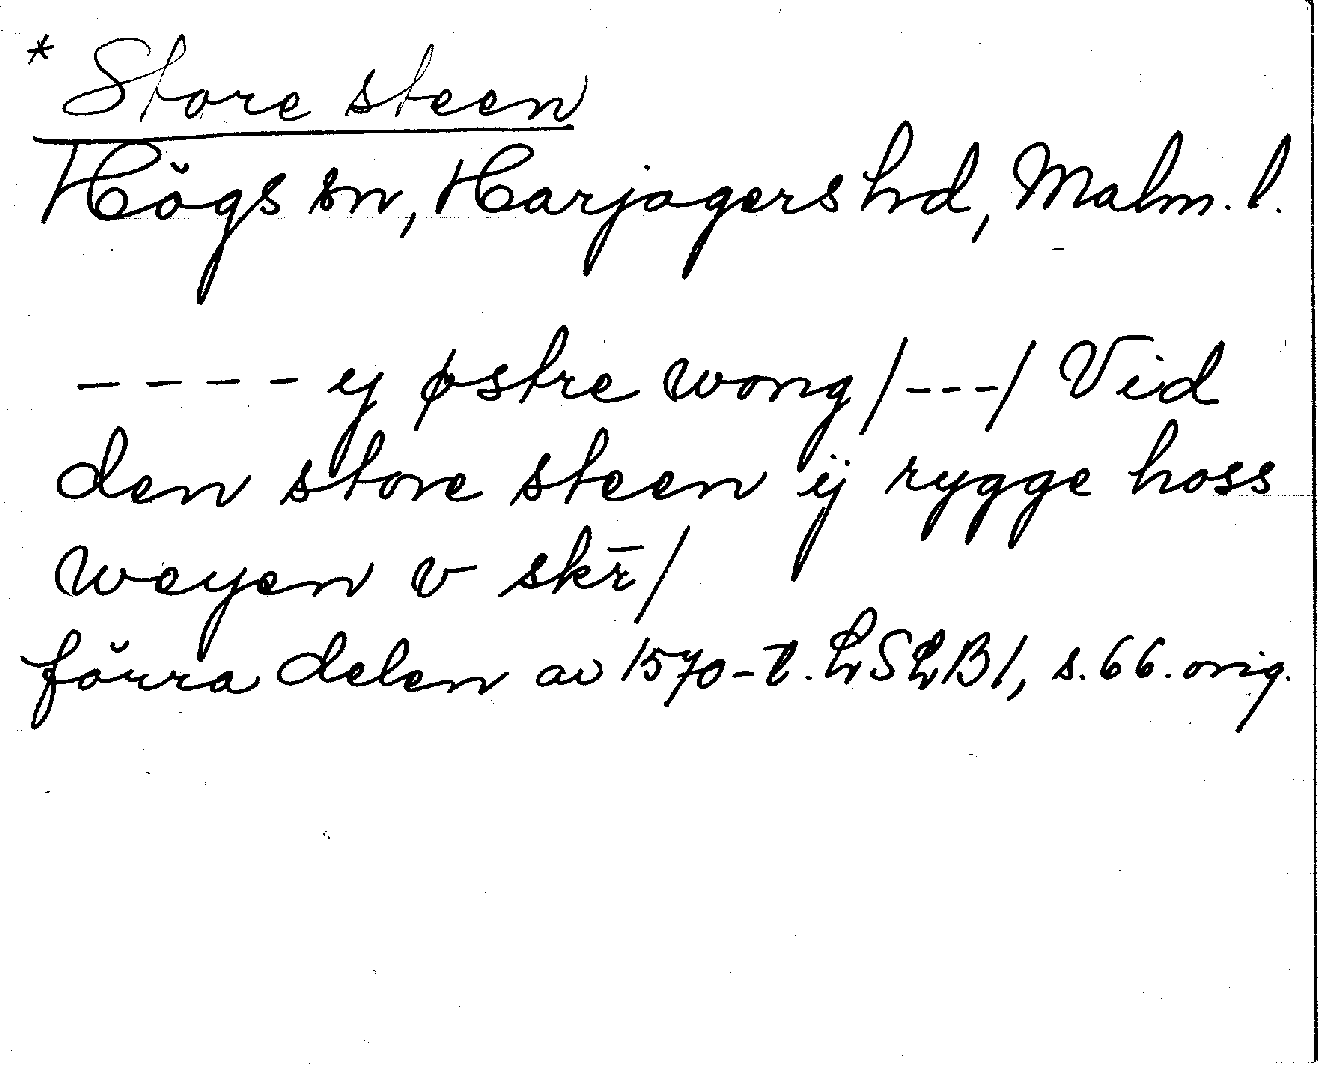 * Store steen
Högs sn, Harjagers hd, Malm. l.
----- y østre wong /---/ Vid
den store steen ij rygge hoss
weyen v skr̄ /
förra delen av 1570-t. LSLB1, s. 66. orig.